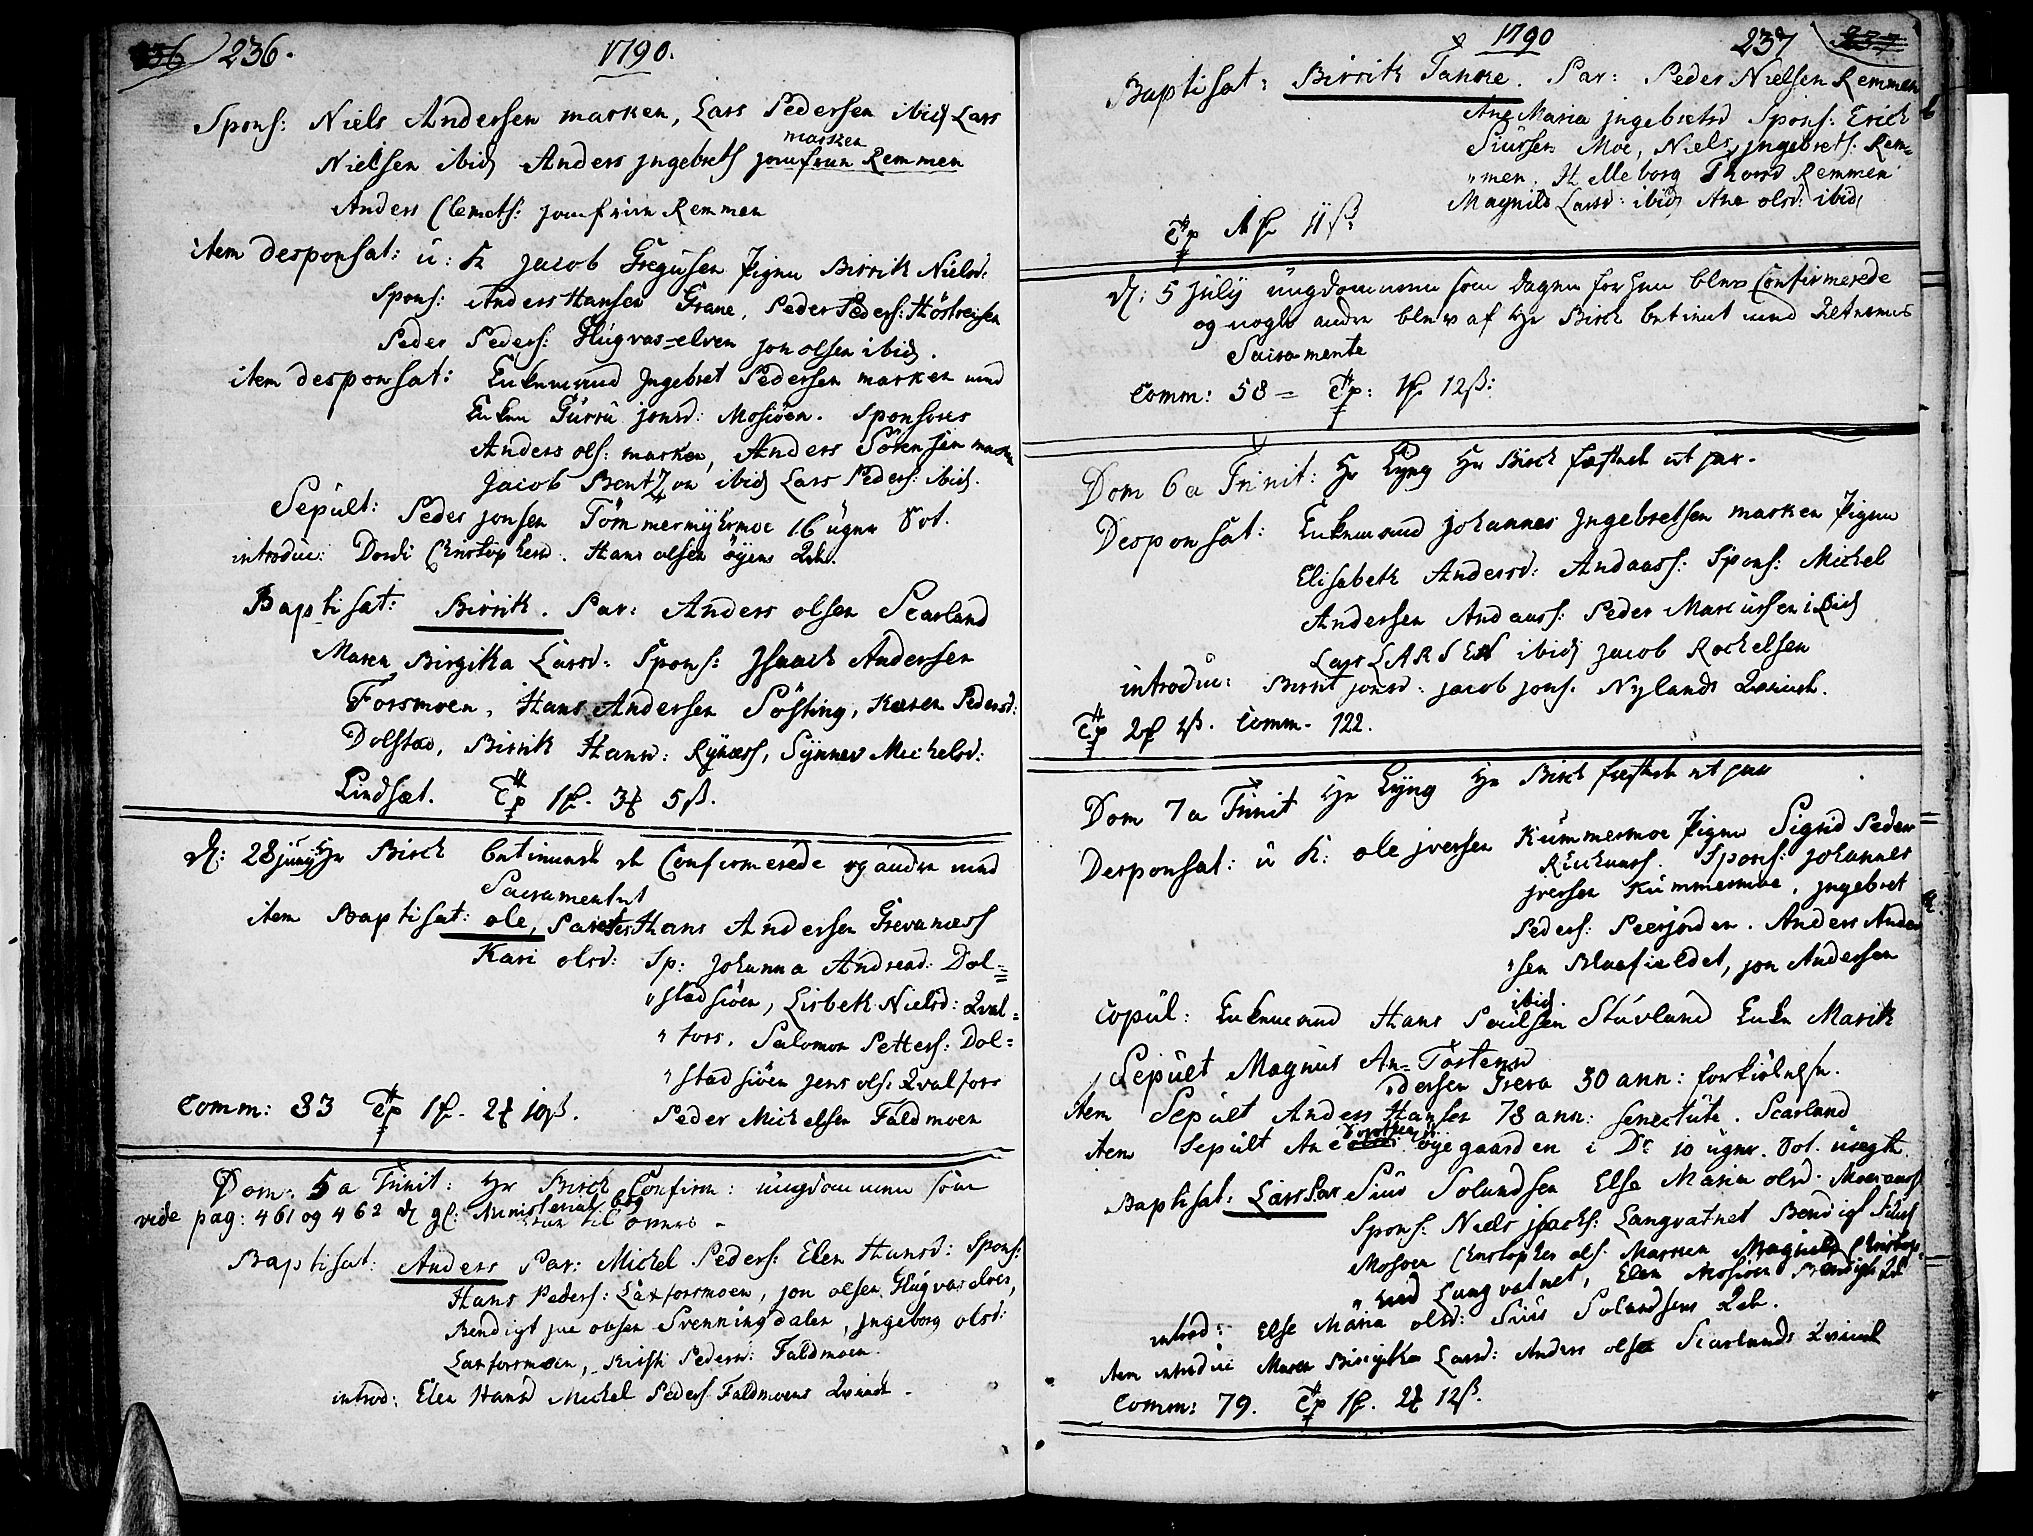 236.
1790.
Spons: Niels Andersen marken, Lars Pedersen ibid Lars
marken
Nielsen ibid Anders jngebrets jomfruen Remmen
Anders Clemets: jomfruen Remmen
item desponsat: u: K Jacob Gregusen Pigen Birrit Nielsd:
Spons: Anders Hansen Grane, Peder Peders:
Peder Peders: Hugvas-elven jon olsen ibid.
item desponsat: Enkemand Jngebret Pedersen marken med
Enken Gurru jonsd: Mosiøen. Sponsores
Anders ols: marken, Anders Sørensen marken
Jacob Bentzon ibid Lars Peders: ibid.
Sepult: Peder jonsen Tømmermyhrmoe 16 uger
introduc: Dordi Christophersd. Hans olsen øyens Qvi.
Baptisat: Birrit. Par: Anders olsen Scarland
Maren Birgitta Larsd: Spons: Jsaach Andersen
Forsmoen, Hans Andersen Søfting, Karen Pedersd:
Dolstad, Birrit Hansd: Rynæss, Synnev Michelsd:
Lindsæt. 1 3 5 ß.
d: 28 juny Hr Birch betienende de Confirmerede og andre med
Sacramentet
item Baptisat: ole, Parentes Hans Andersen Grevanæss
Kari olsd: Sp: Johanna Andread: Dol=
stadsiøen, Lisbeth Nielsd: Qval=
fors, Salomon Petters: Dol=
stadsiøen jens ols: Qvalfors
Comm: 83 1 2 10 ß.
Peder Michelsen Faldmoen
Dom: 5 a Trinit: Hr Birch Confirm: ungdommen som
vide pag: 461 og 462 d gl: Ministerial bog
Baptisat: Anders Par: Michel Peders: Elen Hansd: Spons:
Hans Peders: Laxforsmoen, jon olsen Hugvaselven,
Bendigt jue olsen Svenningdalen, jngeborg olsd:
Laxforsmoen, Kirsti Pedersd: Faldmoen.
introd: Elen Hansd Michel Peders Faldmoens Qvinde.
1790
237
Baptisat: Birrit Tanke. Par: Peder Nielsen Remmen
Ane Maria jngebretsd Spons: Erich
Siursen Moe, Niels jngebrets: Rem=
men. Helleborg Thord Remmen
Magnild Larsd: ibid Ane olsd: ibid
1 11 ß:
d: 5 July ungdommen som dagen forhen blev Confirmerede
og nogle andre blev af Hr Birch betient med Alterens
Sacramente
Comm: 58 = 1 12 ß:
Dom 6 a Trinit: Hr Lyng Hr Birch
Desponsat: Enkemand johannes Jngebretsen marken Pigen
Elisabeth Andersd: Andaass: Spons: Michel
Andersen Andaass: Peder Marcussen ibid
Lars LARSEN ibid jacob Rochelsen
introduc: Birrit jonsd: jacob jons: Nylands Qvinde.
2 1 ß. Comm. 122.
Dom 7 a Trinit Hr Lyng Hr Birch
Desponsat: u K: ole jversen Kummermoe Pigen Sigrid Peder
Spons: johannes
jversen Kummermoe, jngebret
Peders: Peerjorden. Anders Ander
sen Bluefieldet, jon Andersen
ibid.
Copul: Enkemand Hans Paulsen Stavland Enke Marit
Tostensd
Sepult Magnus An-
dersen Trera 30 ann: forkiølelse.
item Sepult Anders Hansen 78 ann: senectute. Scarland
item Sepult Ane Øjegaarden i Dr 10 uger.
Baptisat: Lars Par Siur Solundsen Else Maria olsd.
Spons: Niels jsachs: Langvatnet Bendigt Siurs
Mosoen Christopher ols: Marken Magnild Christop-
hersd Langvatnet, Elen Mosiøen
introd: Else Maria olsd: Siur Solundsens Qvi.
item introduc Maren Birgitta Larsd: Anders olsen Scarlands Qvinde
Comm: 79. 1 2 12 ß.